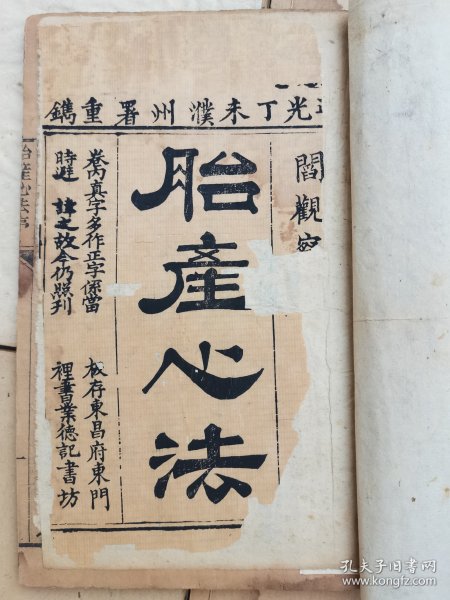 光丁未濮州署重鐫
閻觀察
胎產心法
卷內真字多作正字係當
時避諱之故今仍照刊
板存東昌府東門
裡書業德記書坊
胎產心法序
孔夫子旧书网
www.kongfz.com